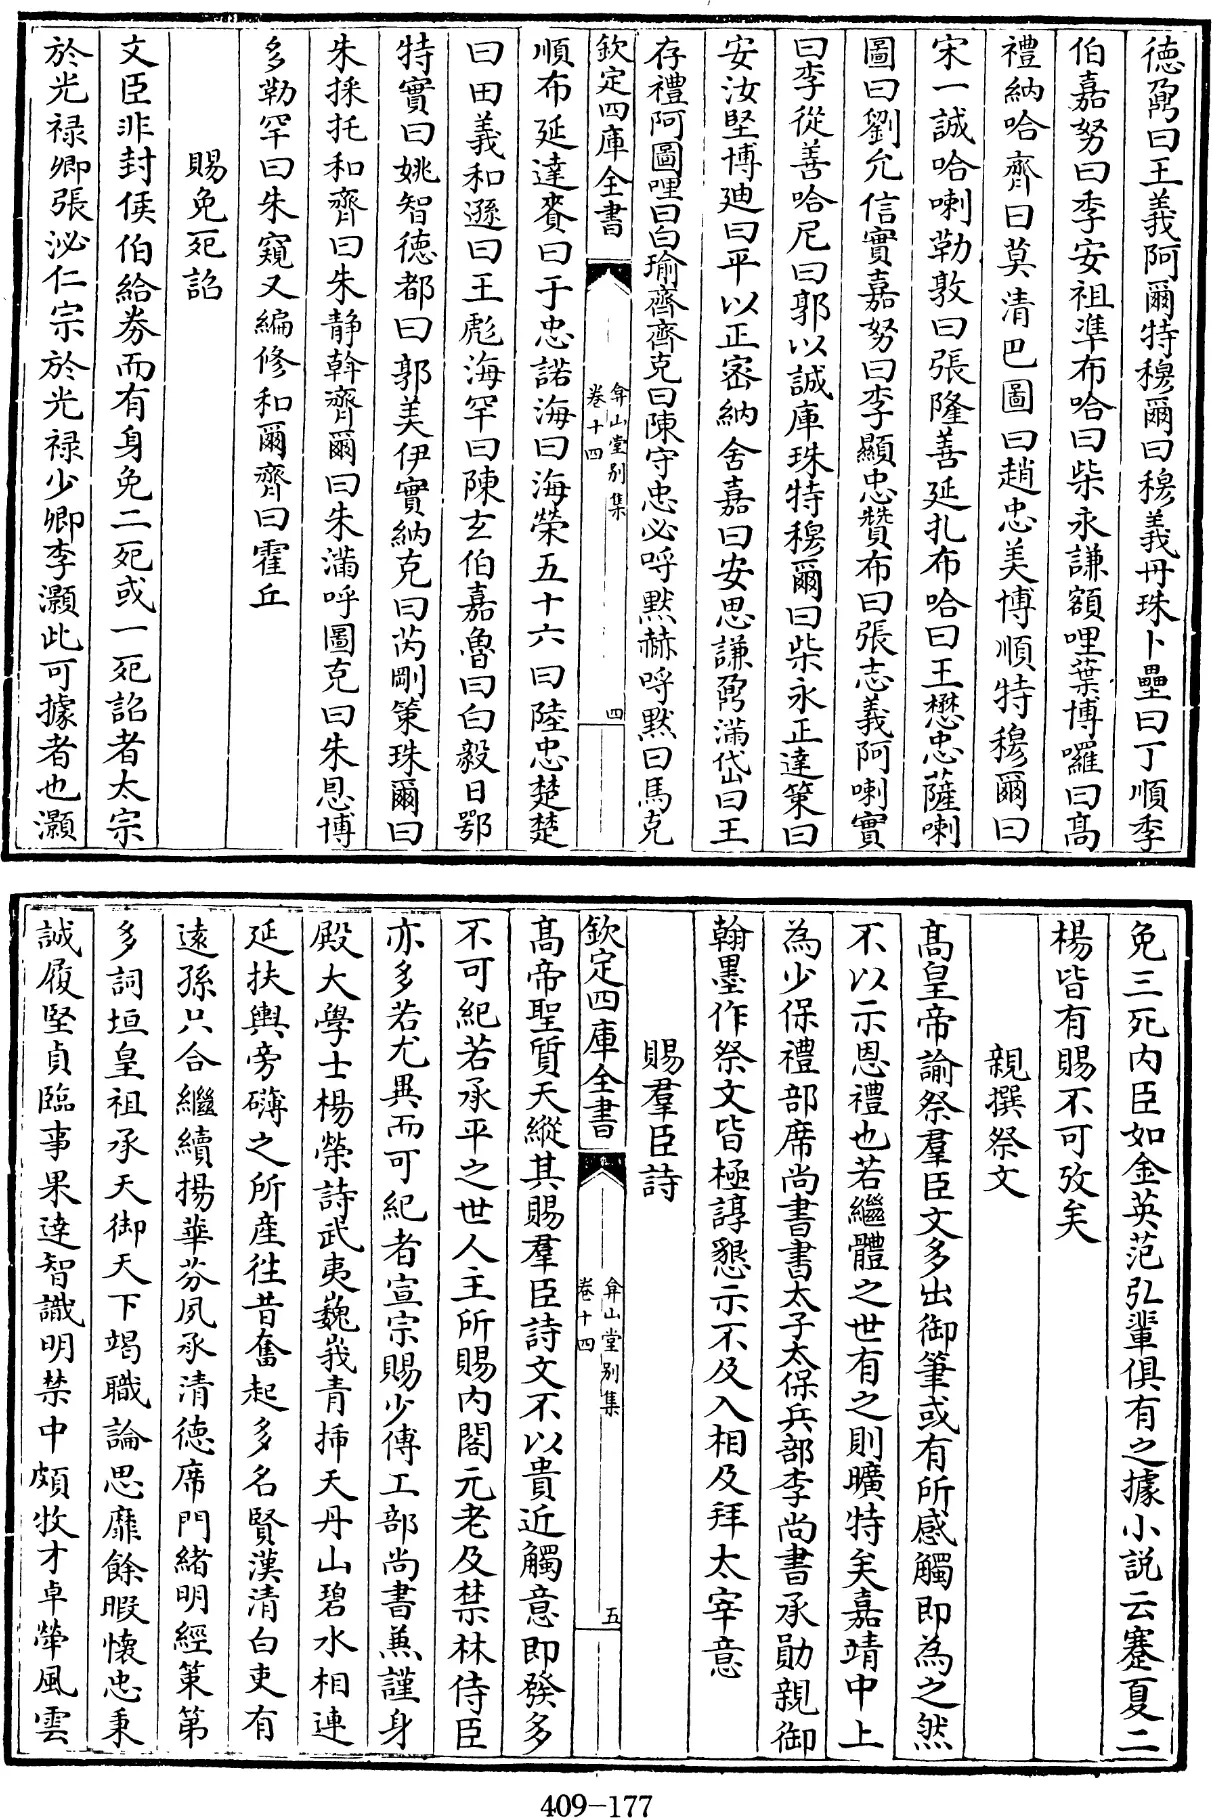 德勇曰王義阿爾特穆爾曰穆義丹珠卜壘曰丁順季
伯嘉努曰季安祖準布哈曰柴永謙額哩葉博囉曰高
禮納哈齊曰莫清巴圖曰趙忠美博順特穆爾曰
宋一誠哈喇勒敦曰張隆善延扎布哈曰王懋忠薩喇
圖曰劉允信實嘉努曰李顯忠贊布曰張志義阿喇實
曰李從善哈尼曰郭以誠庫珠特穆爾曰柴永正達策曰
安汝堅博迪曰平以正密納舍嘉曰安思謙鼐滿岱曰王
存禮阿圖哩曰白瑜齊齊克曰陳守忠必呼黙赫呼黙曰馬克
欽定四庫全書
弇山堂别集
卷十四
四
順布延達賚曰于忠諾海曰海榮五十六曰陸忠楚楚
曰田義和遜曰王彪海罕曰陳玄伯嘉魯曰白毅日鄂
特實曰姚智德都曰郭美伊實納克曰芮剛策珠爾曰
朱採托和齊曰朱静幹齊爾曰朱滿呼圖克曰朱恩博
多勒罕曰朱窺又編修和爾齊曰霍丘
賜免死詔
文臣非封侯伯給券而有身免二死或一死詔者太宗
於光禄卿張泌仁宗於光禄少卿李灝此可據者也灝
免三死内臣如金英范弘輩俱有之據小説云蹇夏二
楊皆有賜不可攷矣
親撰祭文
高皇帝諭祭羣臣文多出御筆或有所感觸即為之然
不以示恩禮也若繼體之世有之則曠特矣嘉靖中上
為少保禮部席尚書書太子太保兵部李尚書承勛親御
翰墨作祭文皆極諄懇示不及入相及拜太宰意
賜羣臣詩
欽定四庫全書
弇山堂别集
卷十四
五
高帝聖質天縱其賜羣臣詩文不以貴近觸意即發多
不可紀若承平之世人主所賜内閣元老及禁林侍臣
亦多若尤異而可紀者宣宗賜少傅工部尚書兼謹身
殿大學士楊榮詩武夷巍峩青揷天丹山碧水相連
延扶輿旁礴之所産徃昔奮起多名賢漢清白吏有
逺孫只合繼續揚華芬夙承清德席門緒明經策第
多詞垣皇祖承天御天下竭職論思靡餘暇懐忠秉
誠履堅貞臨事果達智識明禁中頗牧才卓犖風雲
409-177